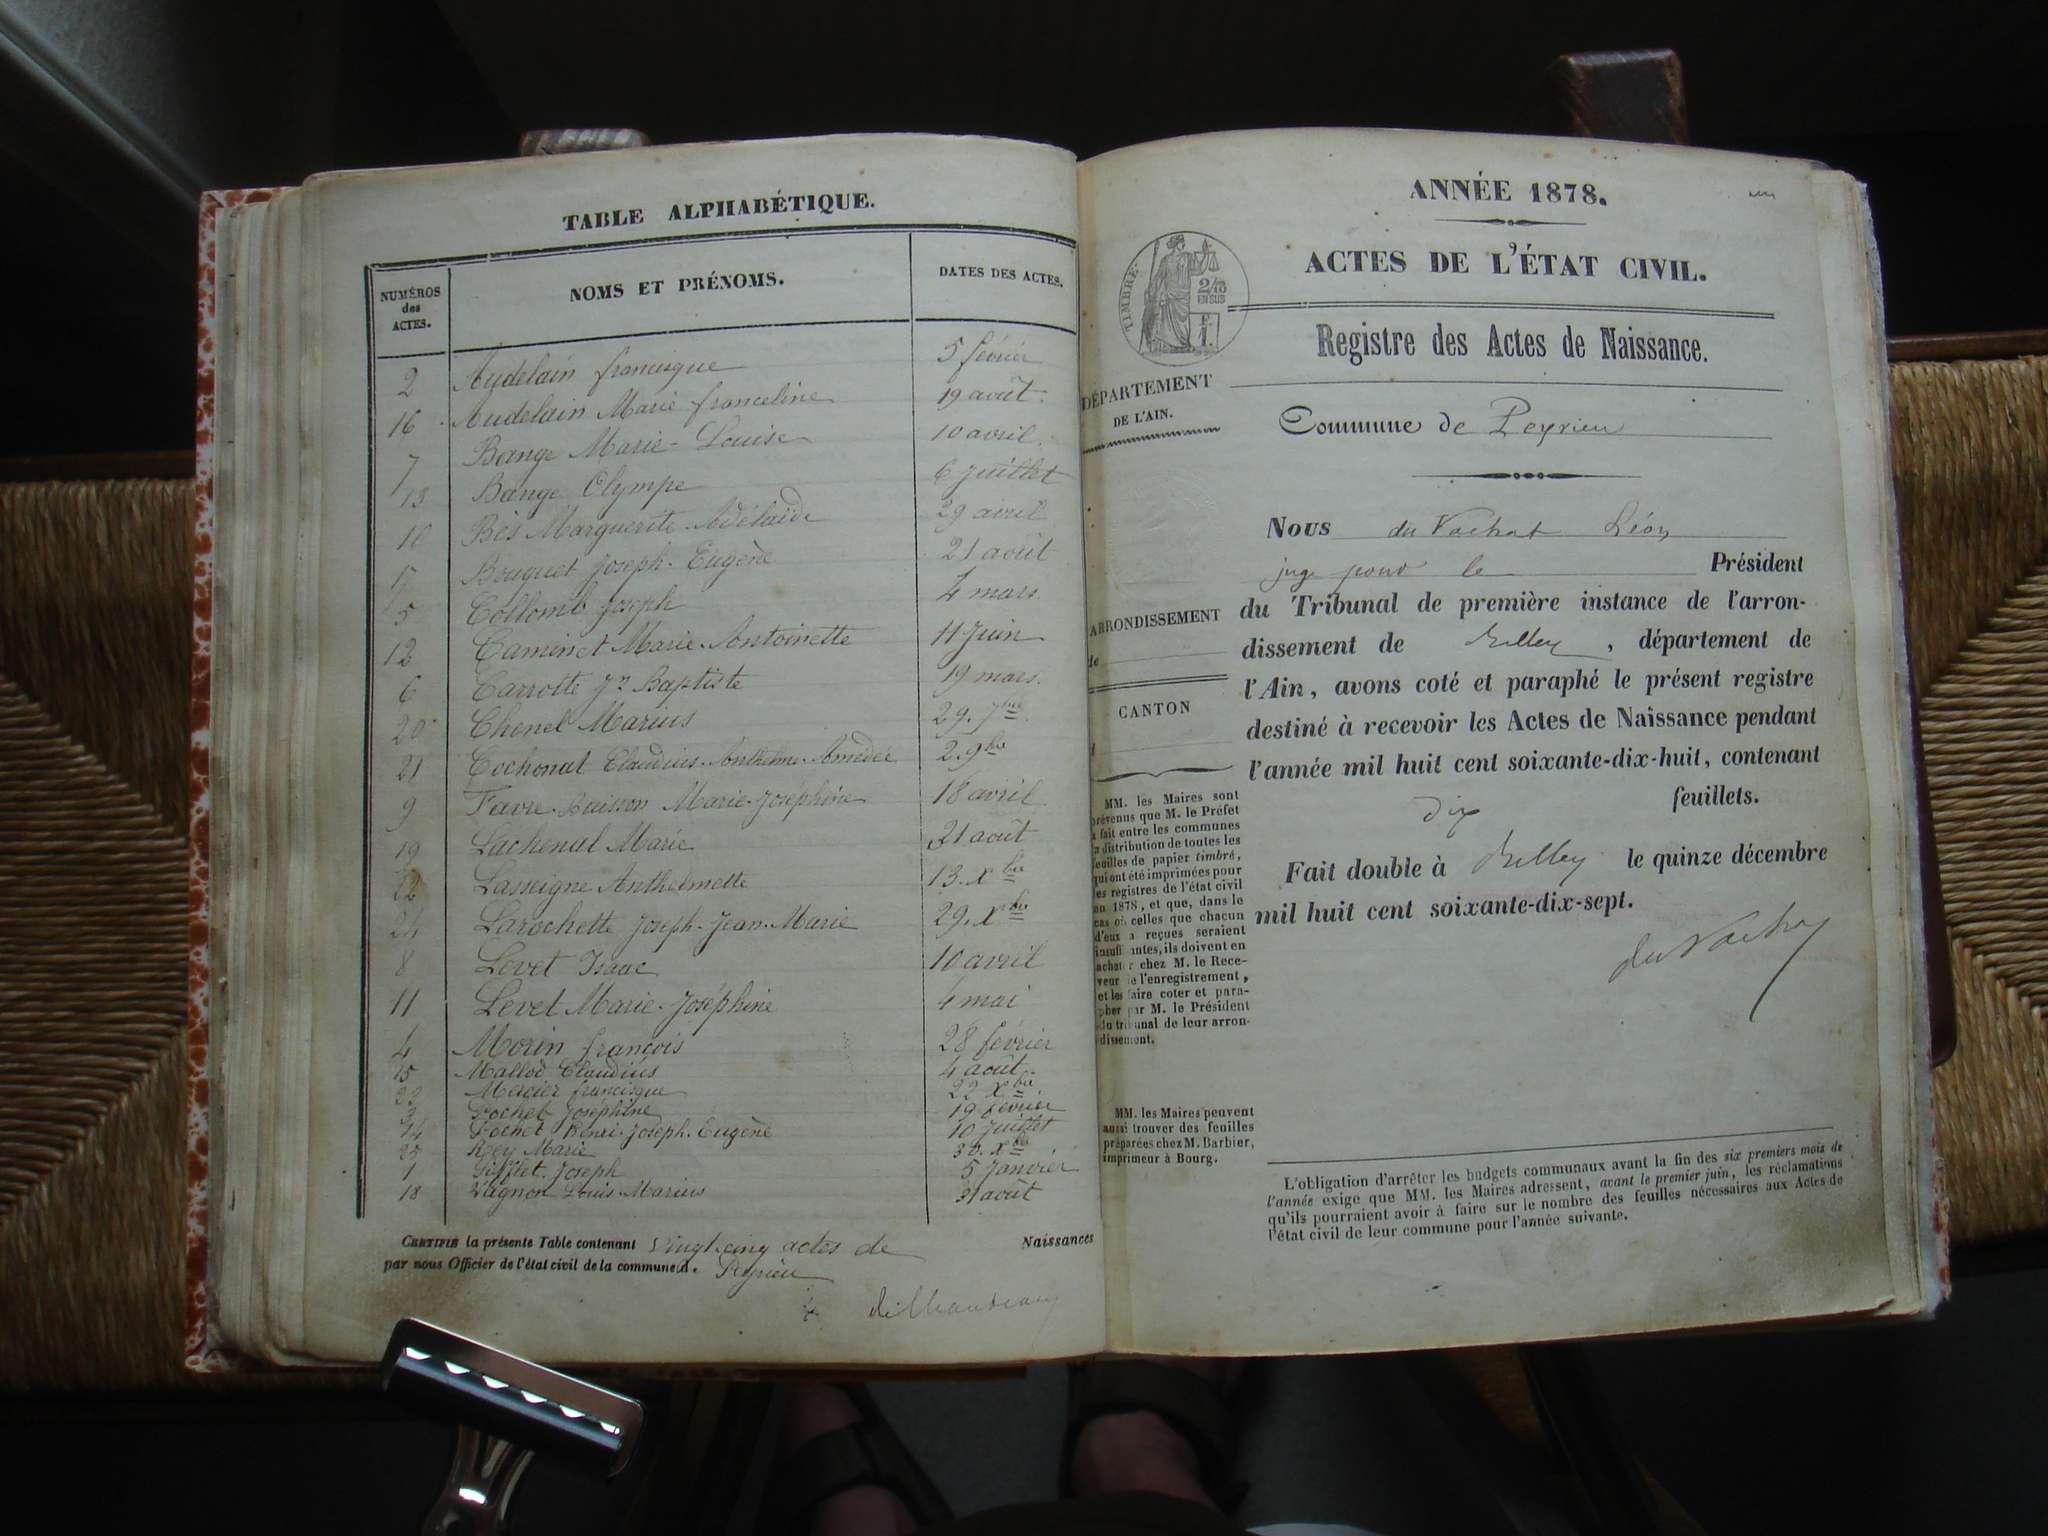 TABLE ALPHABÉTIQUE.
NUMÉROS des ACTES. NOMS ET PRÉNOMS. DATES DES ACTES.
2 Audelain francisque 5 février
16 Audelain Marie franceline 19 août.
7 Bange Marie-Louise 10 avril.
13 Bange Olympe 6 Juillet
10 Bès Marguerite-Adélaïde 29 avril
17 Bouquet Joseph-Eugène 21 août
5 Collomb Joseph 4 mars.
12 Caminet Marie-Antoinette 11 Juin
6 Carrotte Jn Baptiste 19 mars.
20 Chenel Marius 29. 7bre
21 Cochonat Claudius-Anthelme-Amédée 2. 9bre
9 Favre-Buisson Marie-Joséphine 18 avril
19 Lachenal Marie 31 août
22 Lasseigne Anthelmette 13. Xbre
24 Larochette Joseph-Jean-Marie 29. Xbre
8 Levet Isaac 10 avril
11 Levet Marie-Joséphine 4 mai
4 Morin françois 28 février
15 Mallod Claudius 4 août.
23 Mercier francisque 22 Xbre
3 Pochet Joséphine 19 février
14 Pochet Henri-Joseph-Eugène 10 Juillet
25 Rey Marie 30. Xbre
1 Sifflet Joseph 5 Janvier
18 Vagnon Louis-Marius 31 août
CERTIFIÉ la présente Table contenant Vingt-cinq actes de Naissances
par nous Officier de l'état civil de la commune d. Peyrieu
ANNÉE 1878.
ACTES DE L'ÉTAT CIVIL.
TIMBRE
2/10
EN SUS
F.
1.
Registre des Actes de Naissance.
DÉPARTEMENT
DE L'AIN.
Commune de Peyrieu
Nous du Vachat Léon
juge pour le Président
du Tribunal de première instance de l'arron-
dissement de Belley, département de
l'Ain, avons coté et paraphé le présent registre
destiné à recevoir les Actes de Naissance pendant
l'année mil huit cent soixante-dix-huit, contenant
dix feuillets.
Fait double à Belley le quinze décembre
mil huit cent soixante-dix-sept.
du Vachat
ARRONDISSEMENT
de
CANTON
MM. les Maires sont
prévenus que M. le Préfet
a fait entre les communes
la distribution de toutes les
feuilles de papier timbré,
qui ont été imprimées pour
les registres de l'état civil
en 1878, et que, dans le
cas où celles que chacun
d'eux a reçues seraient
insuffisantes, ils doivent en
acheter chez M. le Rece-
veur de l'enregistrement,
et les faire coter et para-
pher par M. le Président
du tribunal de leur arron-
dissement.
MM. les Maires peuvent
aussi trouver des feuilles
préparées chez M. Barbier,
imprimeur à Bourg.
L'obligation d'arrêter les budgets communaux avant la fin des six premiers mois de
l'année exige que MM. les Maires adressent, avant le premier juin, les réclamations
qu'ils pourraient avoir à faire sur le nombre des feuilles nécessaires aux Actes de
l'état civil de leur commune pour l'année suivante.